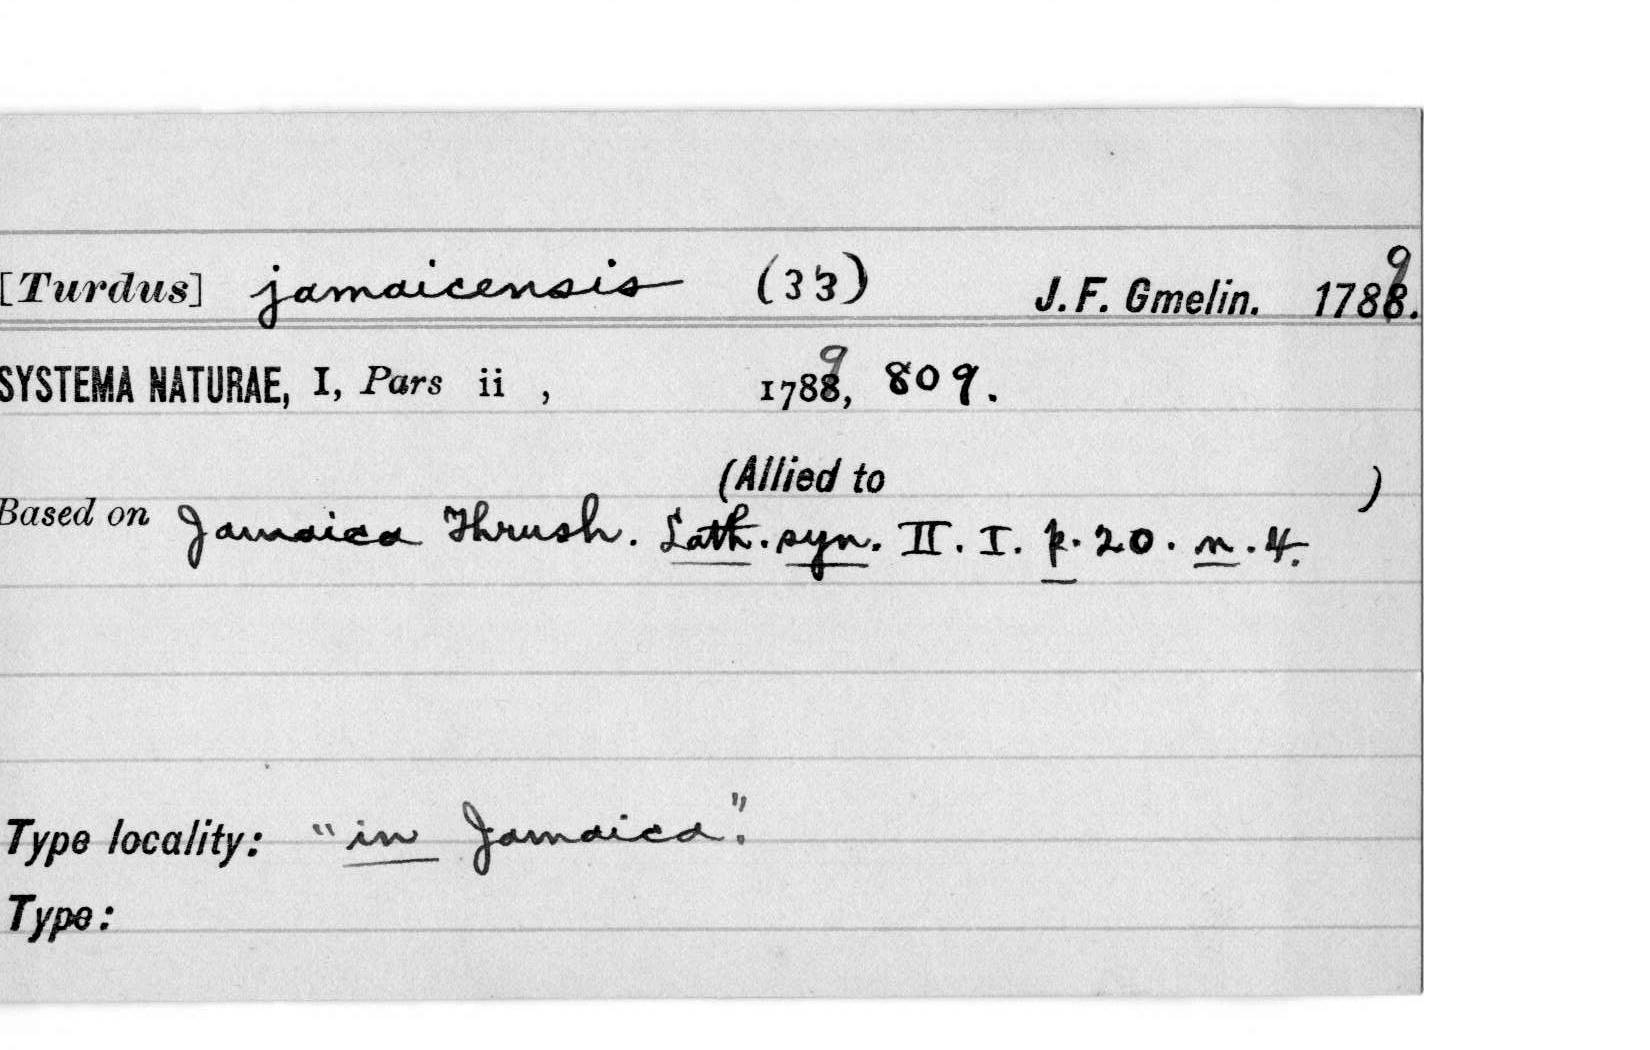 [Turdus] jamaicensis (33) J. F. Gmelin. 1789.
SYSTEMA NATURAE, I, Pars ii , 1789, 809.
(Allied to )
Based on Jamaica Thrush. Lath. syn. II. I. p. 20. n. 4.
Type locality: "in Jamaica".
Type: